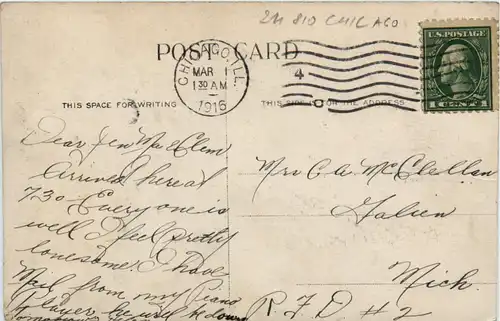 24 810 CHICAGO
POST CARD
CHICAGO, ILL.
MAR 1
1 30 AM
1916
4
U.S. POSTAGE
1 CENT 1
THIS SPACE FOR WRITING
THIS SIDE IS FOR THE ADDRESS
Dear Jen Mac & Clem
Arrived here at
7.30 - Everyone is
well I feel pretty
lonesome. I have
Mail from my Piano
Player he will be down
Mrs C. A. McClellan
Galien
Mich.
R. F. D #2